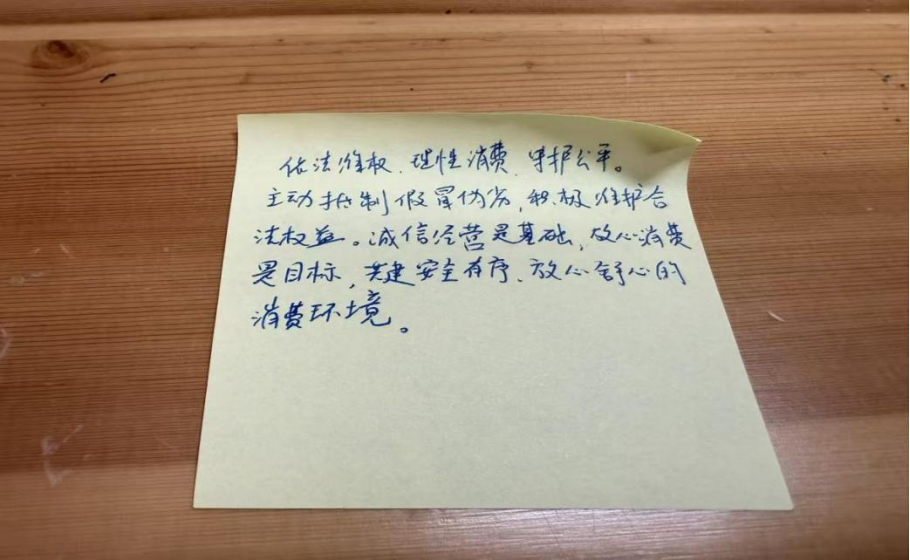 依法维权、理性消费、守护公平。
主动抵制假冒伪劣，积极维护合
法权益。诚信经营是基础，放心消费
是目标，共建安全有序、放心舒心的
消费环境。